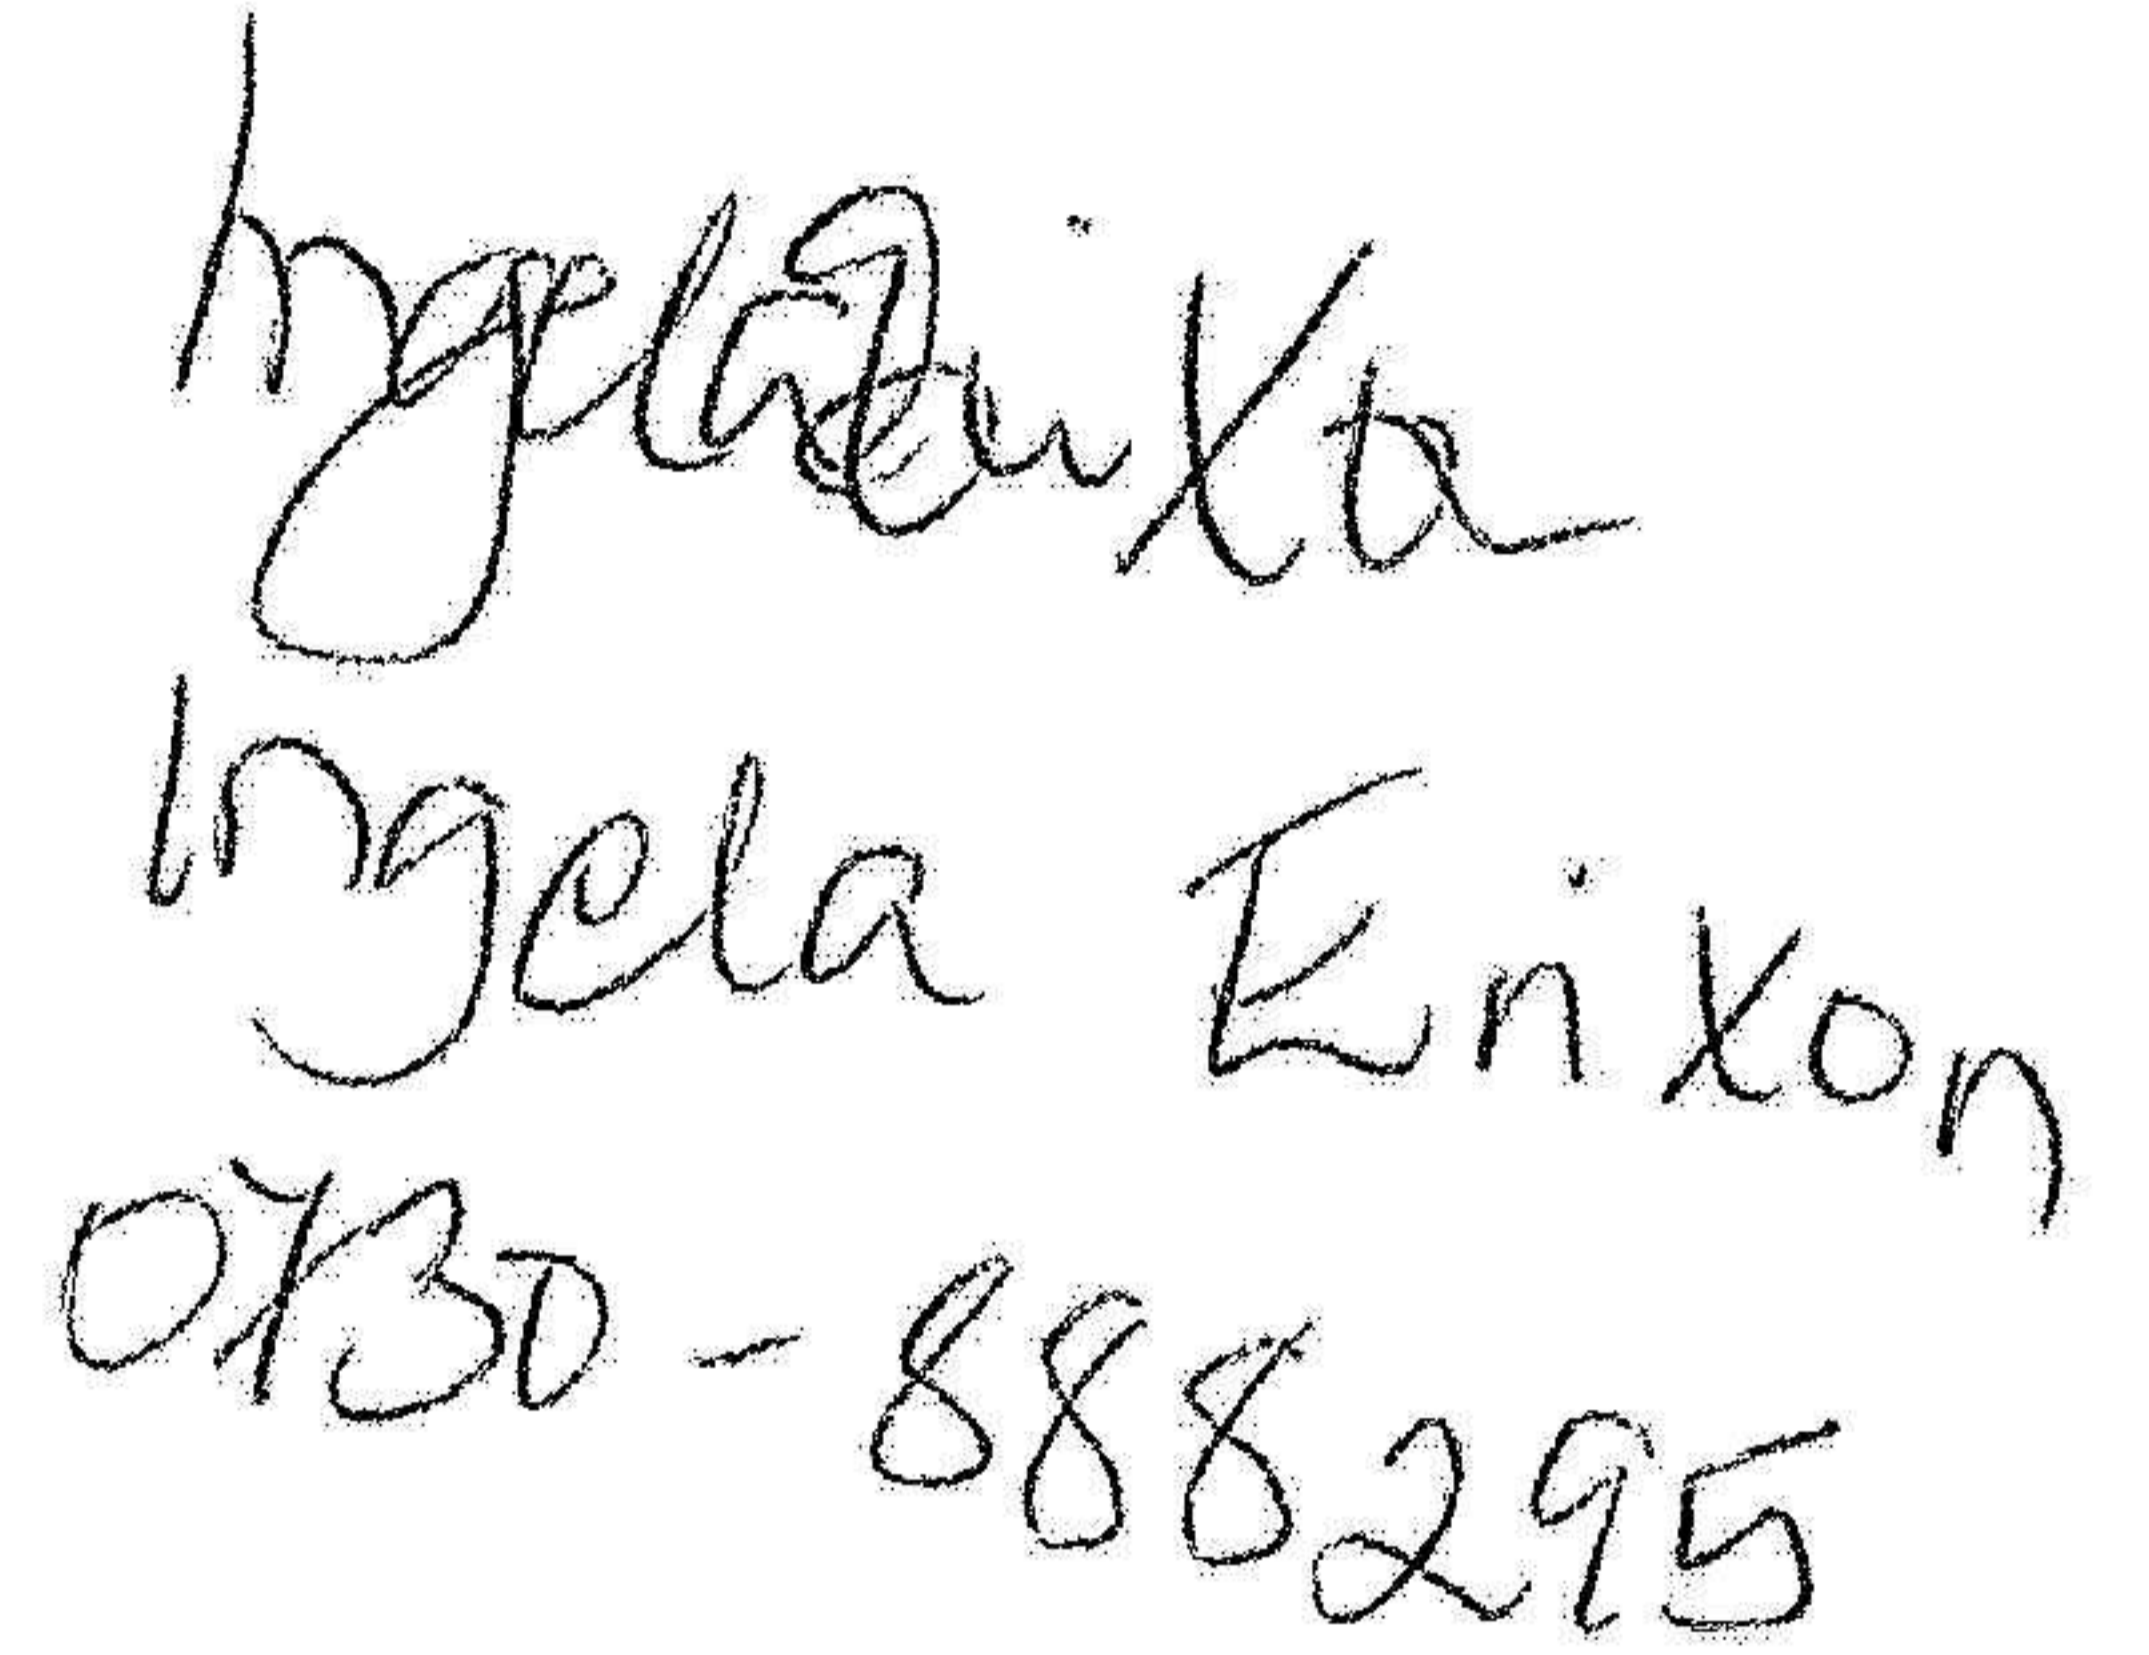 Ingela Erixon
Ingela Erixon
0730-888295